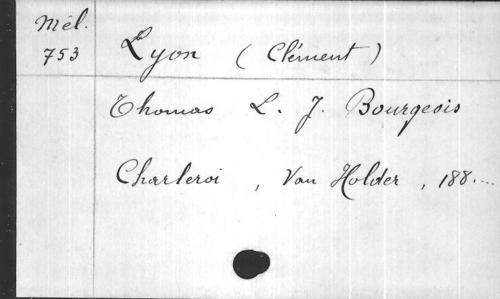 Mél.
753
Lyon (Clément)
Thomas L. J. Bourgeois
Charleroi, Van Holder, 188....